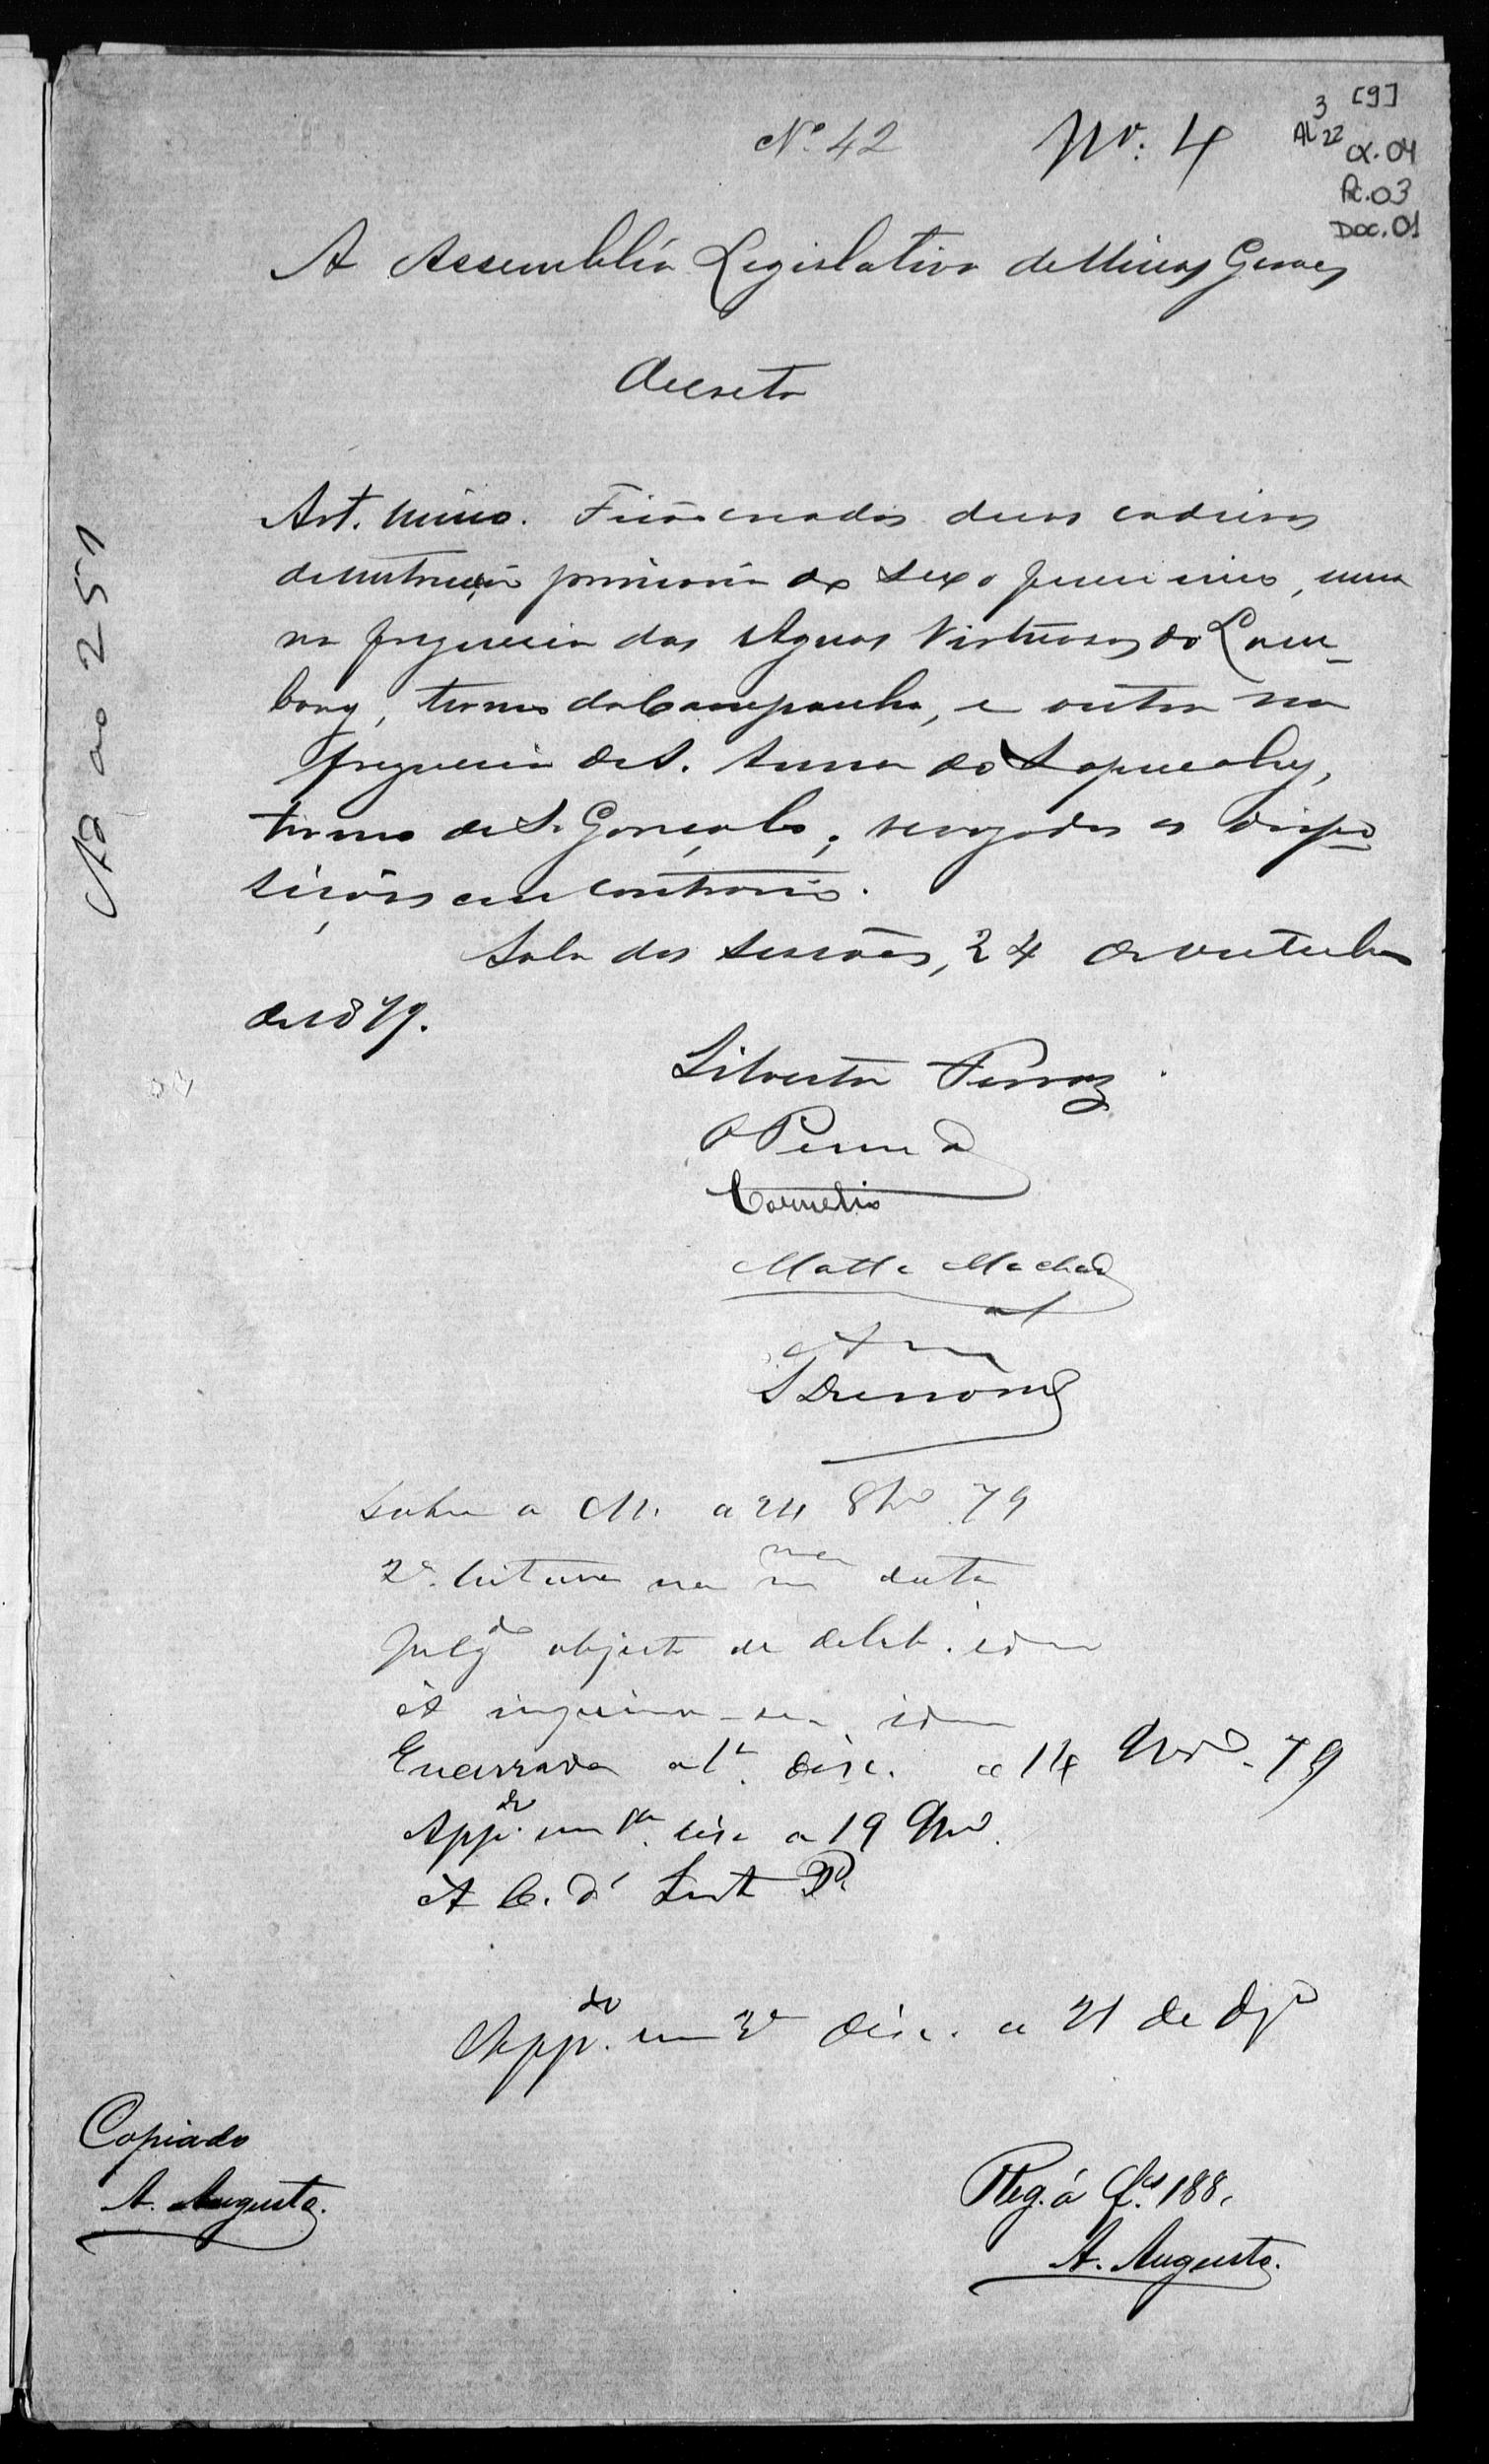 Nº 42
Nº: 4
[9]
AL 3
22
CX.04
PC.03
DOC.01
A Assembléa Legislativa de Minas Geraes
Decreta
Art. unico. Ficão creadas duas cadeiras
de instrucção primaria do sexo femenino, uma
na freguesia das Aguas Virtuosas do Lam-
bary, termo da Campanha, e outra na
freguesia de S. Anna do Sapucahy,
termo de S. Gonçalo; revogadas as dispo
sições em contrario.
Sala das sessões, 24 de outubro
de 1879.
Silvestre Ferraz
Penna
Cornelio
Matta Machado
S Drumond
sobre a M. a 24 8bro 79
2ª leitura na mma data
Julgdo objecto de delib. idem
A imprimir-se, idem
Encerrada a 1ª disc. a 14 9bro 79
Appdo. em 1ª disc a 19 9bro.
A C. d' Inst P.
Appdo. em 3ª disc. a 21 de Dzo
Copiado
A. Augusto.
Reg. á fls. 188.
A. Augusto.
251